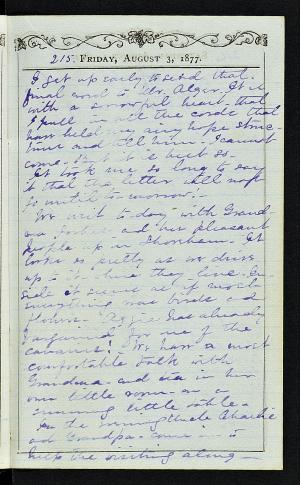 215. FRIDAY, AUGUST 3, 1877.
I get up early to send that
final word to Mr. Alger. It is
with a sorrowful heart, that
I pull in all the cords that
have held me any hope some-
time and tell him - I cannot
come. But it is best so.
It took me so long to say
it that the letter will not
go until to-morrow.
We visit to-day with Grand-
ma and her pleasant
people up in Stoneham. It
looks so pretty as we drive
up to it where they live. In-
side it seems as if most
everything was birds and
flowers. Aggie has already
bargained for one of the
canaries! We have a most
comfortable talk with
Grandma - and tea in her
own little room - on a
cunning little table -
In the evening Uncle Charlie
and Grandpa - come in to
help the visiting along -